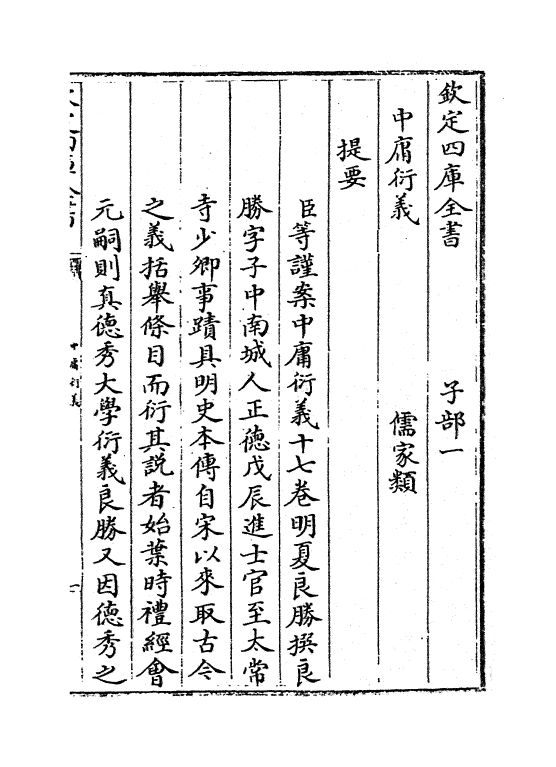 欽定四庫全書　子部一
中庸衍義　儒家類
提要
臣等謹案中庸衍義十七卷明夏良勝撰良
勝字子中南城人正德戊辰進士官至太常
寺少卿事蹟具明史本傳自宋以來取古今
之義括舉條目而衍其説者始葉時禮經會
元嗣則真德秀大學衍義良勝又因德秀之
中庸衍義